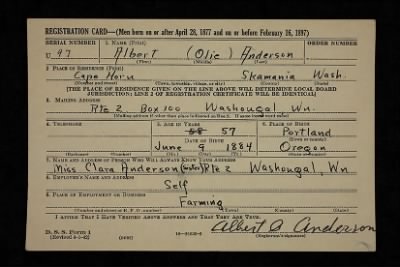 REGISTRATION CARD—(Men born on or after April 28, 1877 and on or before February 16, 1897)
SERIAL NUMBER 1. NAME (Print)
U 97 Albert (Olie) Anderson
(First) (Middle) (Last)
2. PLACE OF RESIDENCE (Print)
Cape Horn Skamania Wash.
(Number and street) (Town, township, village, or city) (County) (State)
[THE PLACE OF RESIDENCE GIVEN ON THE LINE ABOVE WILL DETERMINE LOCAL BOARD
JURISDICTION; LINE 2 OF REGISTRATION CERTIFICATE WILL BE IDENTICAL]
3. MAILING ADDRESS
Rte 2 Box 100 Washougal, Wn.
[Mailing address if other than place indicated on line 2. If same insert word same]
4. TELEPHONE 5. AGE IN YEARS 6. PLACE OF BIRTH
57 Portland
DATE OF BIRTH
June 9 1884 Oregon
7. NAME AND ADDRESS OF PERSON WHO WILL ALWAYS KNOW YOUR ADDRESS
Miss Clara Anderson Rte 2 Washougal, Wn
8. EMPLOYER'S NAME AND ADDRESS
Self
9. PLACE OF EMPLOYMENT OR BUSINESS
Farming
I AFFIRM THAT I HAVE VERIFIED ABOVE ANSWERS AND THAT THEY ARE TRUE.
D. S. S. Form 1 Albert O Anderson
(Revised 4-1-42) (over) (Registrant's signature)